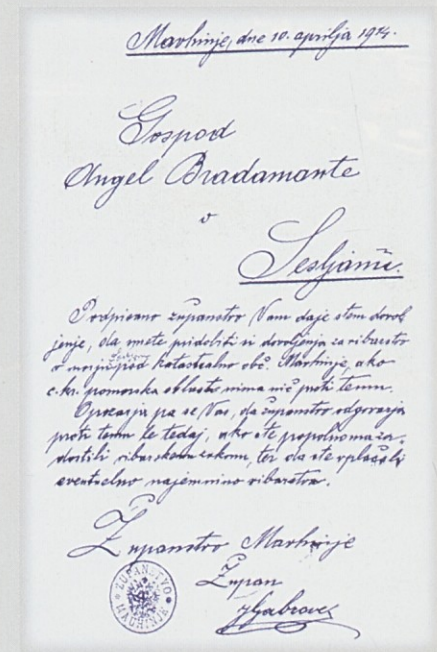 Mavhinje, dne 10. aprilja 1914.
Gospod
Angel Bradamante
v
Sesljanu.
Podpisano županstvo Vam daje s tem dovol
jenje, da smete pridobiti si dovoljenje za ribarstvo
v morju pod katastralno obč. Mavhinje, ako
c. kr. pomorska oblast nima nič proti temu.
Opozarja pa se Vas, da županstvo odgovarja
proti temu le tedaj, ako ste popolnoma za-
dostili ribarskemu zakonu, ter da ste vplačali
eventuelno najemnino ribarstva.
Županstvo Mavhinje
Župan
JGabrovec
ŽUPANSTVO
MAVHINJE